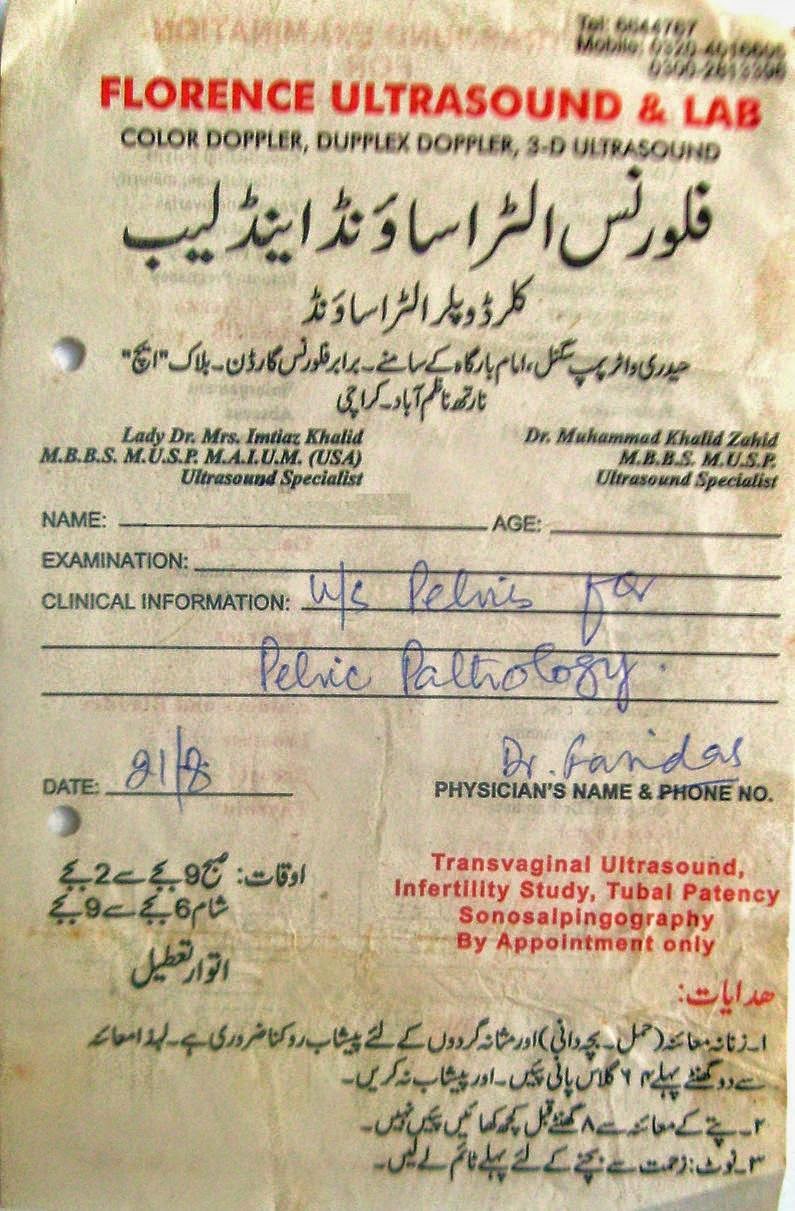 Tel: 6644767
Mobile: 0320-4016606
0300-2613396
FLORENCE ULTRASOUND & LAB
COLOR DOPPLER, DUPPLEX DOPPLER, 3-D ULTRASOUND
فلورنس الٹراساؤنڈ اینڈ لیب
کلر ڈوپلر الٹراساؤنڈ
حیدری واٹر پمپ سگنل، امام بارگاہ کے سامنے۔ برابر فلورنس گارڈن۔ بلاک "ایچ"
نارتھ ناظم آباد۔ کراچی
Lady Dr. Mrs. Imtiaz Khalid
M.B.B.S. M.U.S.P. M.A.I.U.M. (USA)
Ultrasound Specialist
Dr. Muhammad Khalid Zahid
M.B.B.S. M.U.S.P.
Ultrasound Specialist
NAME: AGE:
EXAMINATION:
CLINICAL INFORMATION: U/S Pelvis for
Pelvic Pathology.
DATE: 21/8
Dr.
PHYSICIAN'S NAME & PHONE NO.
اوقات: صبح 9 بجے سے 2 بجے
شام 6 بجے سے 9 بجے
اتوار تعطیل
Transvaginal Ultrasound,
Infertility Study, Tubal Patency
Sonosalpingography
By Appointment only
ھدایات:
۱۔ زنانہ معائنہ (حمل۔ بچہ دانی) اور مثانہ گردوں کے لئے پیشاب روکنا ضروری ہے۔ لہذا معائنہ
سے دو گھنٹے پہلے ۴ ۶ گلاس پانی پئیں۔ اور پیشاب نہ کریں۔
۲۔ پتے کے معائنہ سے ۸ گھنٹے قبل کچھ کھائیں پئیں نہیں۔
۳۔ نوٹ: زحمت سے بچنے کے لئے پہلے ٹائم لے لیں۔